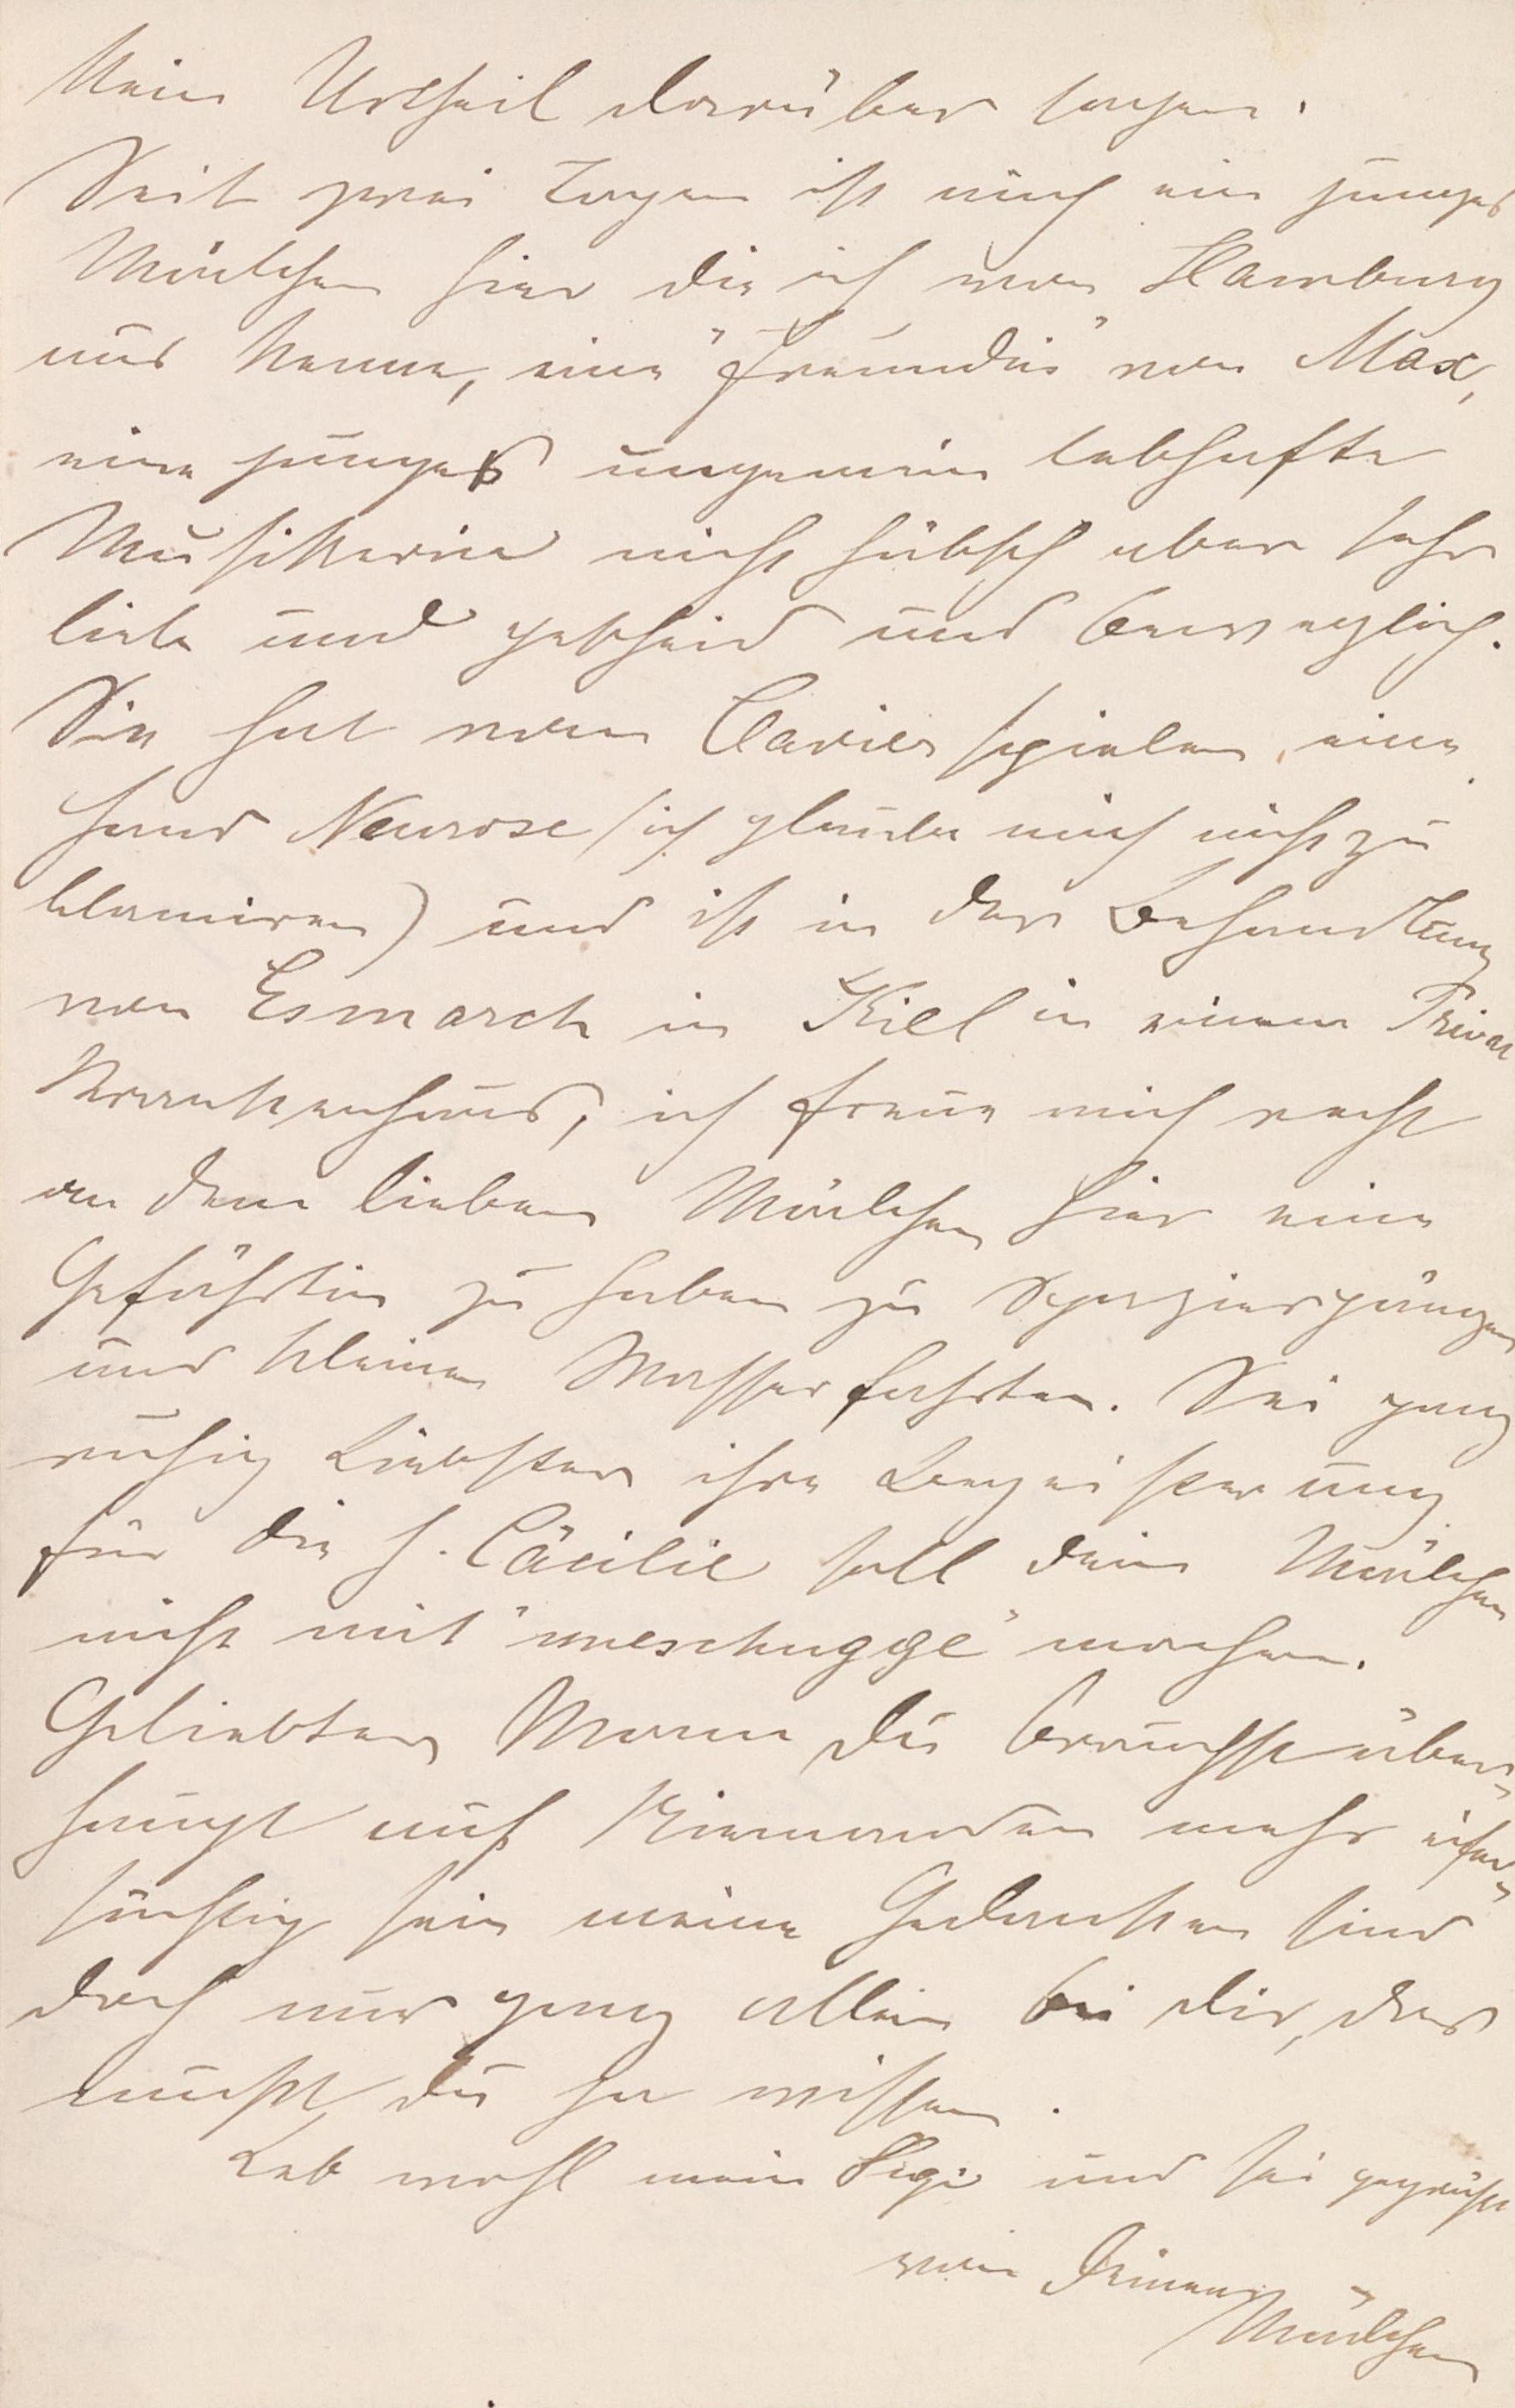 kein Urtheil darüber sagen.
Seit zwei Tagen ist auch ein junges
Mädchen hier die ich von Hamburg
aus kenne, eine "Freundin" von Max,
eine junges ungemein lebhafte
Musikerin nicht hübsch aber sehr
lieb und gescheid und beweglich.
Sie hat vom Clavier spielen, eine
Hand Neurose (ich glaube mich nicht zu
blamiren) und ist in der Behandlung
von Esmarch in Kiel in einem Privat
Krankenhaus, ich freue mich recht
an dem lieben Mädchen hier eine
Gefährtin zu haben zu Spaziergängen
und kleinen Wasserfahrten. Sei ganz
ruhig Liebster ihre Begeisterung
für die h. Cäcilie soll dein Mädchen
nicht mit "meschugge" machen.
Geliebter Mann du brauchst über-
haupt auf Niemanden mehr eifer-
süchtig sein meine Gedanken sind
doch nur ganz allein bei dir, das
mußt du ja wissen.
Leb wohl mein Sigi und sei gegrüßt
von Deinem
Mädchen